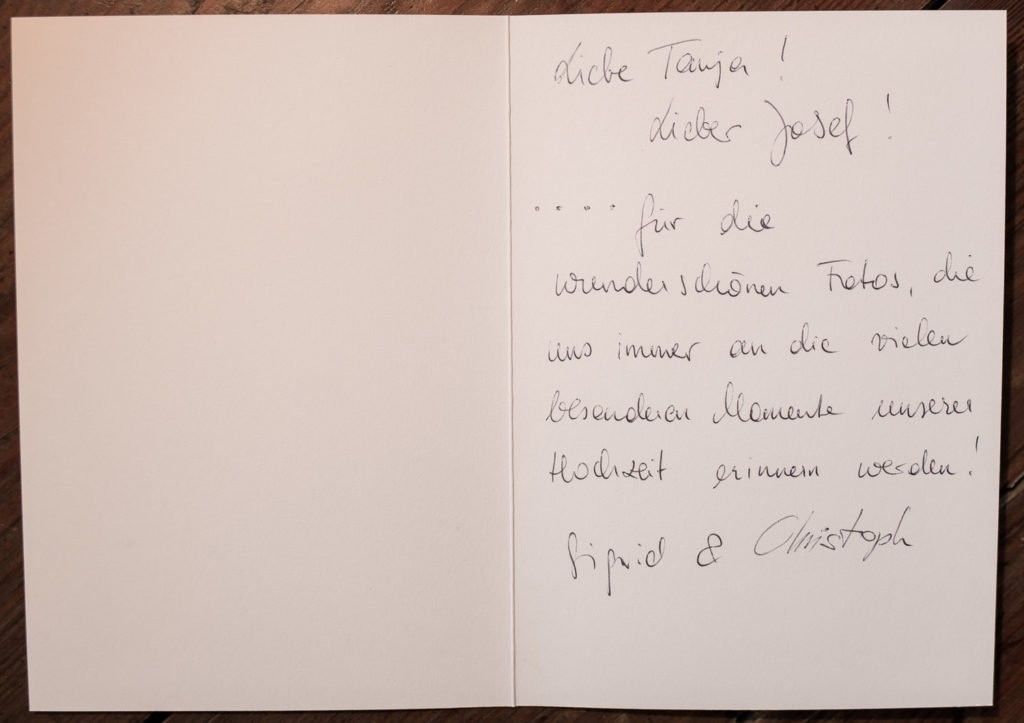 Liebe Tanja!
Lieber Josef!
.... für die
wunderschönen Fotos, die
uns immer an die vielen
besonderen Momente unserer
Hochzeit erinnern werden!
Sigrid & Christoph